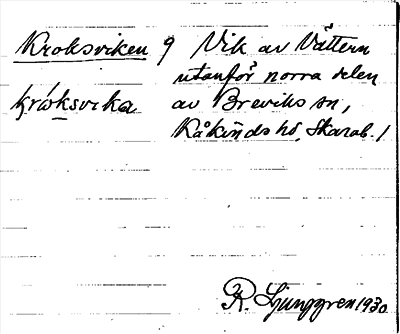 Kroksviken 9 Vik av Vättern
utanför norra delen
krȯ́ksvika av Breviks sn,
Kåkinds hd, Skarab. l
R. Ljunggren 1930